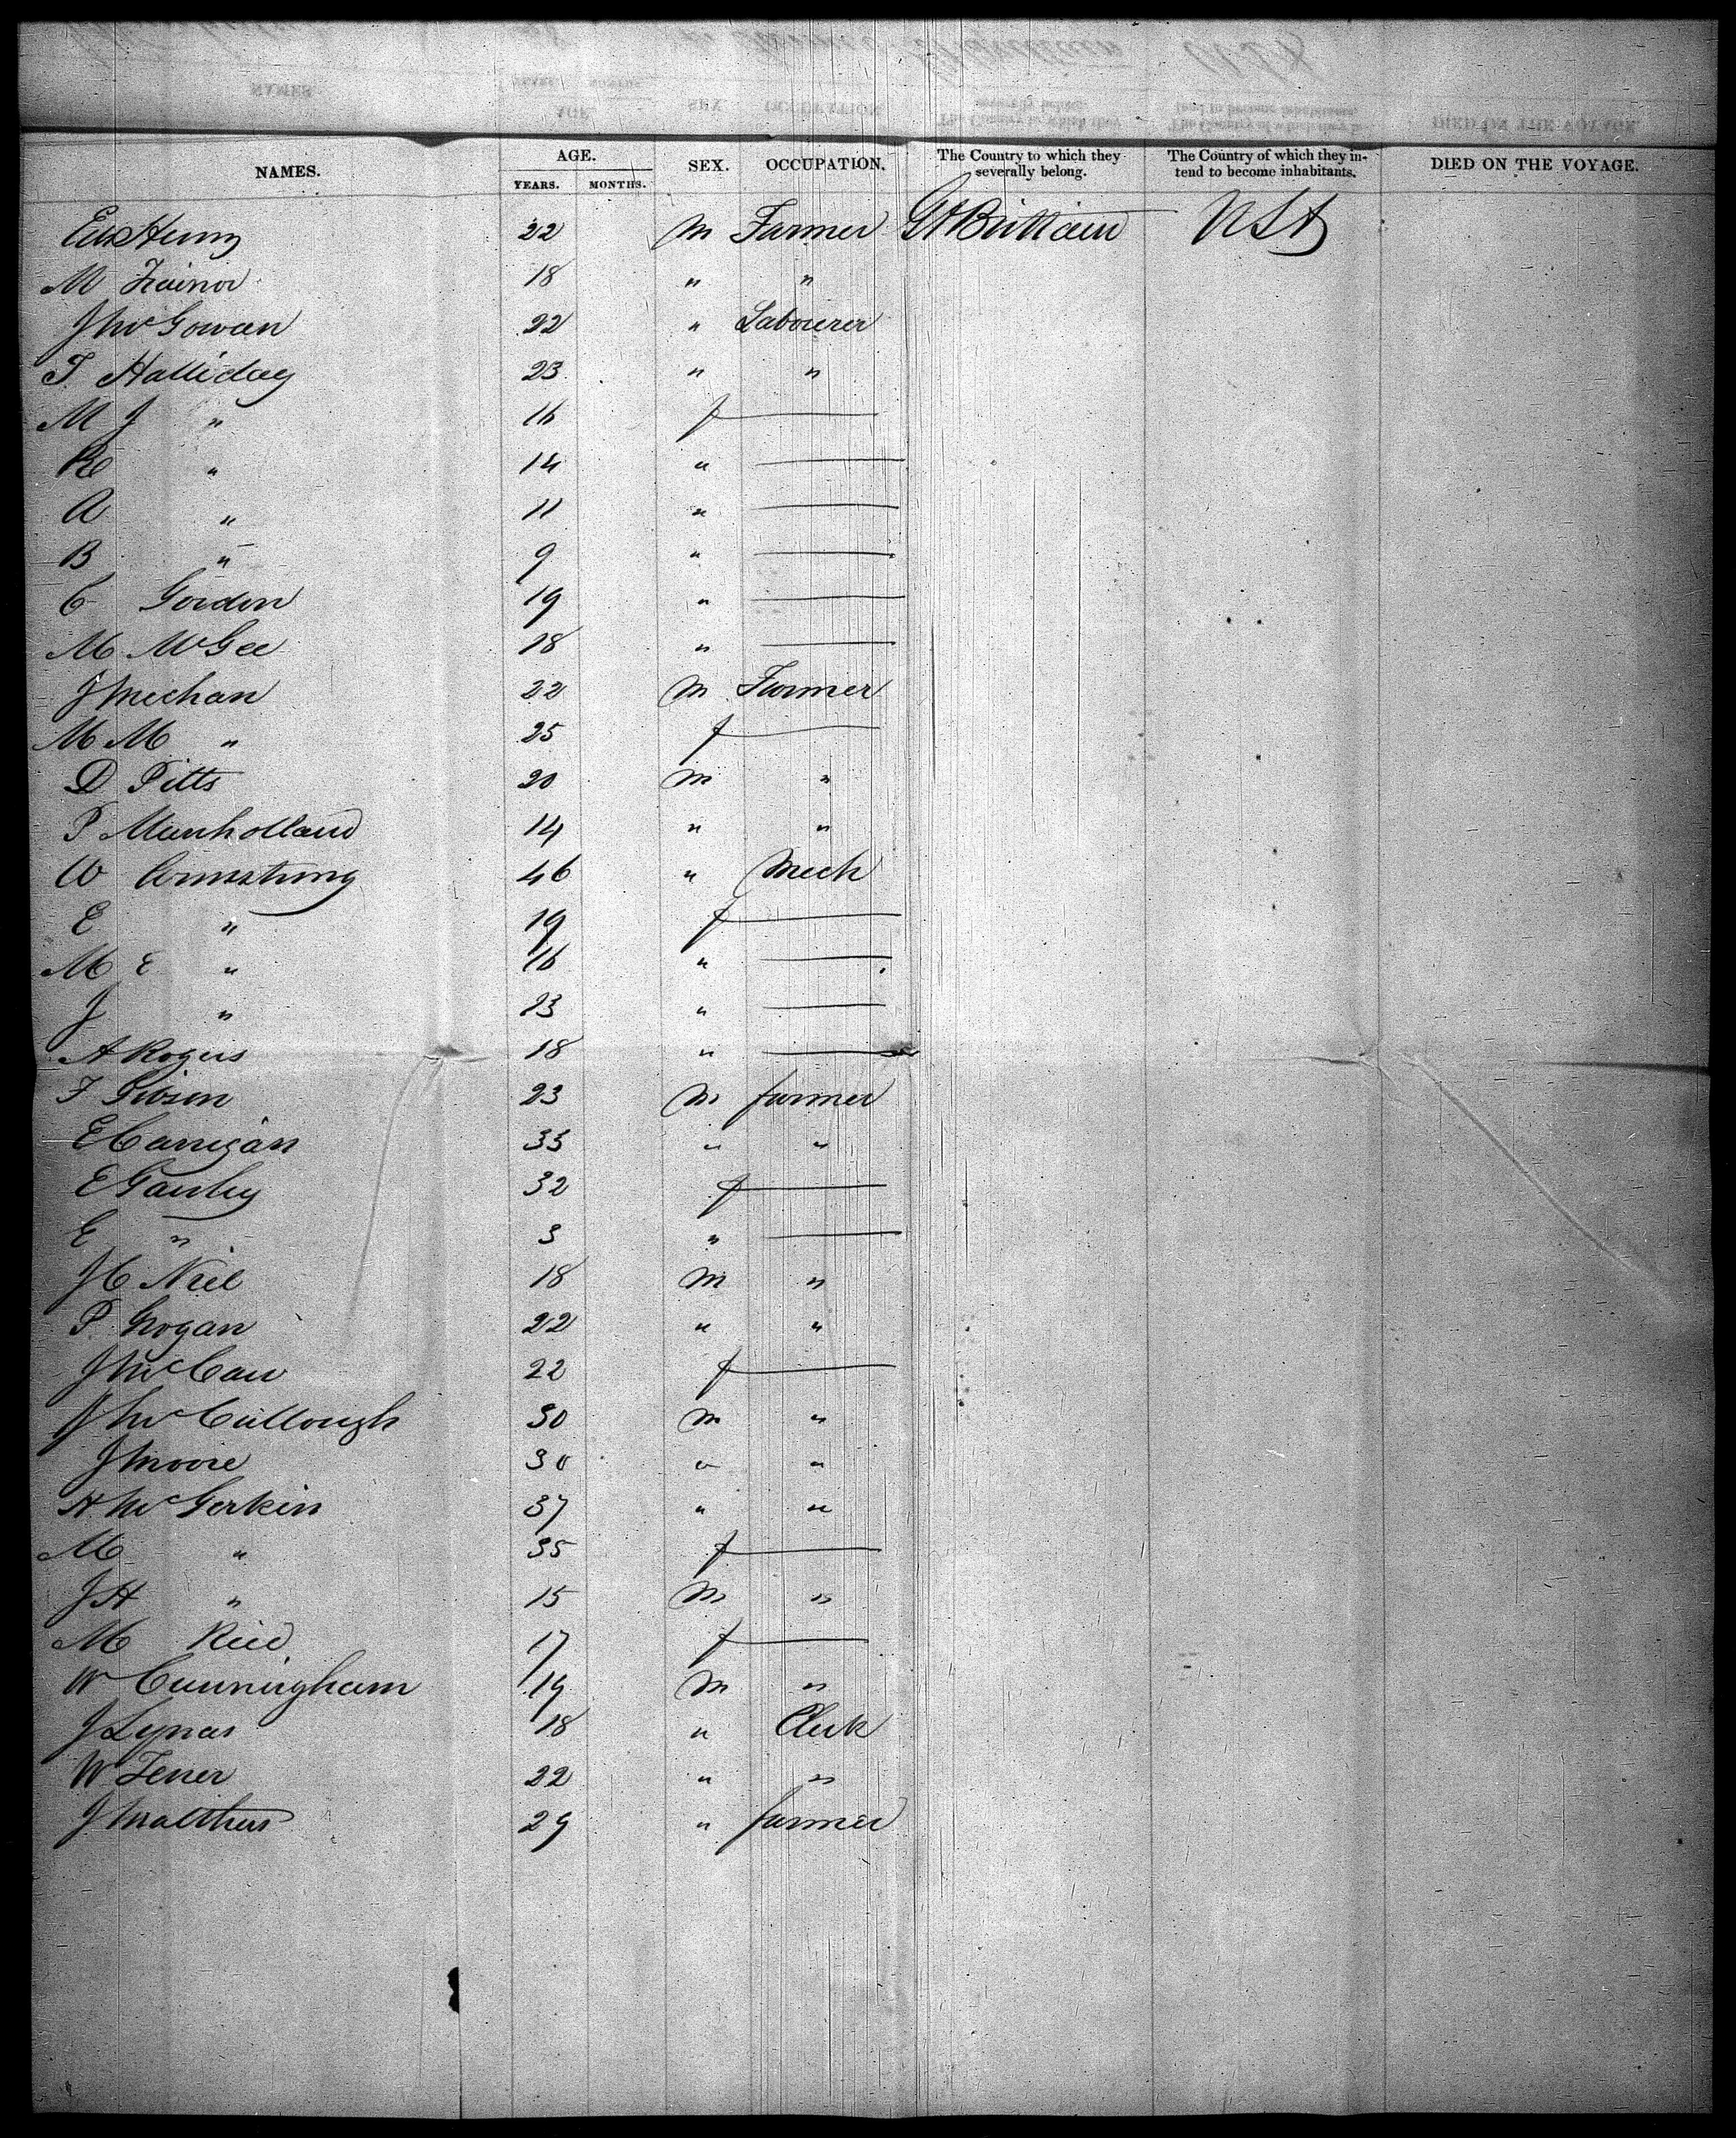 NAMES. AGE. SEX. OCCUPATION. The Country to which they severally belong. The Country of which they intend to become inhabitants. DIED ON THE VOYAGE.
YEARS. MONTHS.
Henry 22 M Farmer Gt Brittain USA
M Trainor 18 " "
J McGowan 22 " Labourer
T Halliday 23 " "
M J " 16 f
R " 14 "
A " 11 "
B " 9 "
C Gordon 19 "
M McGee 18 "
J Mechan 22 M Farmer
M M " 25 f
D Pitts 20 M "
P Munholland 14 " "
W Armstrong 46 " Mech
E " 19 f
M E " 16 "
J " 13 "
A Rogers 18 "
F Gibson 23 M farmer
E Carrigan 33 " "
E Gauley 32 f
E " 3 "
J C Niel 18 M "
P Grogan 22 " "
J McCaw 22 f
J McCullough 30 M "
J Moore 30 " "
H McGerkin 37 " "
M " 35 f
J H " 15 M "
M Reid 17 f
W Cunningham 19 M "
J Lynas 18 " Clerk
W Fener 22 " "
J Malthus 29 " farmer